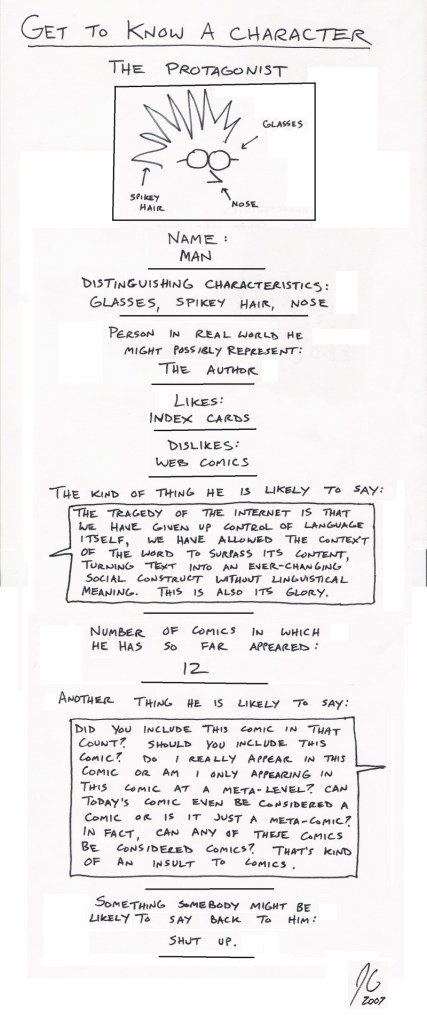 GET TO KNOW A CHARACTER
THE PROTAGONIST
GLASSES
SPIKEY
HAIR
NOSE
NAME:
MAN
DISTINGUISHING CHARACTERISTICS:
GLASSES, SPIKEY HAIR, NOSE
PERSON IN REAL WORLD HE
MIGHT POSSIBLY REPRESENT:
THE AUTHOR
LIKES:
INDEX CARDS
DISLIKES:
WEB COMICS
THE KIND OF THING HE IS LIKELY TO SAY:
THE TRAGEDY OF THE INTERNET IS THAT
WE HAVE GIVEN UP CONTROL OF LANGUAGE
ITSELF, WE HAVE ALLOWED THE CONTEXT
OF THE WORD TO SURPASS ITS CONTENT,
TURNING TEXT INTO AN EVER-CHANGING
SOCIAL CONSTRUCT WITHOUT LINGUISTICAL
MEANING. THIS IS ALSO ITS GLORY.
NUMBER OF COMICS IN WHICH
HE HAS SO FAR APPEARED:
12
ANOTHER THING HE IS LIKELY TO SAY:
DID YOU INCLUDE THIS COMIC IN THAT
COUNT? SHOULD YOU INCLUDE THIS
COMIC? DO I REALLY APPEAR IN THIS
COMIC OR AM I ONLY APPEARING IN
THIS COMIC AT A META-LEVEL? CAN
TODAY'S COMIC EVEN BE CONSIDERED A
COMIC OR IS IT JUST A META-COMIC?
IN FACT, CAN ANY OF THESE COMICS
BE CONSIDERED COMICS? THAT'S KIND
OF AN INSULT TO COMICS.
SOMETHING SOMEBODY MIGHT BE
LIKELY TO SAY BACK TO HIM:
SHUT UP.
2007